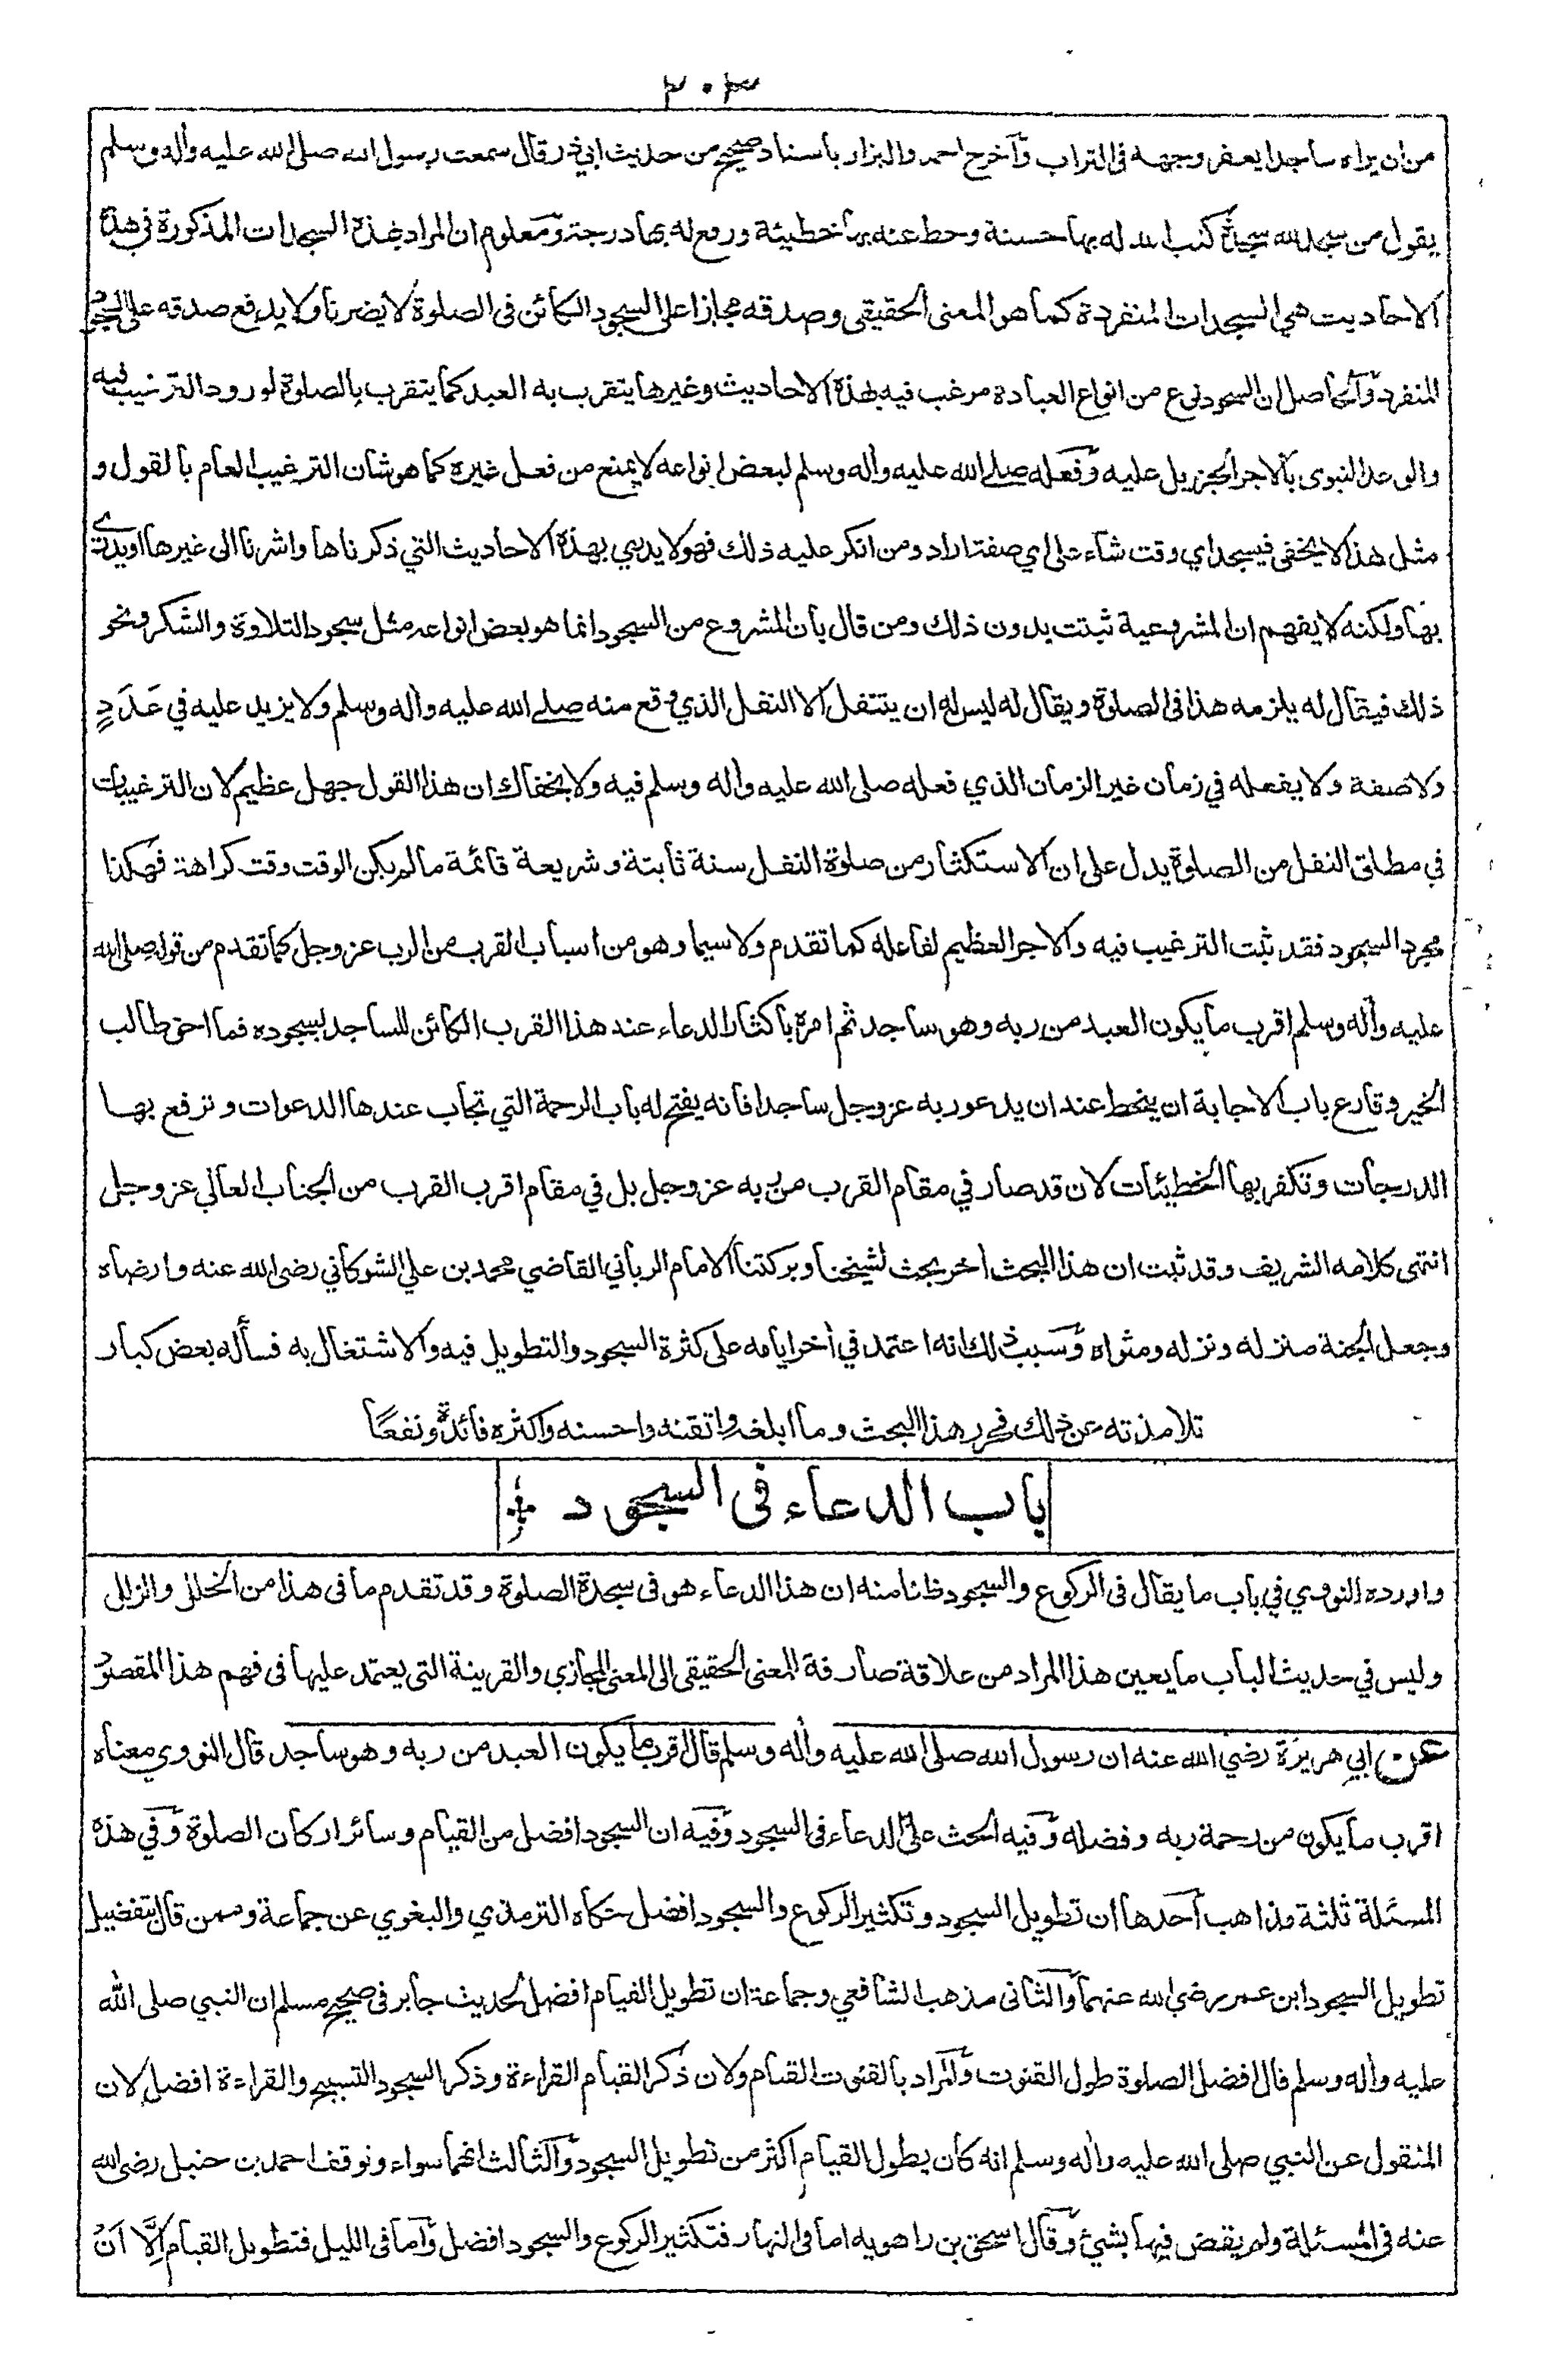 ٣٠٣
من ان يراه ساجدا يعفر وجهه فى التراب وآخرج احمد والبزار باسناد صحيح من حديث ابي ذر قال سمعت رسول الله صلى الله عليه وأله وسلم
يقول من سجد لله سجدة كتب الله له بها حسنة وحط عنه بها خطيئة ورفع له بها درجة ومعلوم ان المراد بهذة السجدات المذكورة في هذة
الاحاديث هي السجدات المنفردة كما هو المعنى الحقيقى وصدقه مجازا على السجود الكائن فى الصلوة لا يضرنا ولا يدفع صدقه على السجود
المنفرد وآلحاصل ان السجود نوع من انواع العبادة مرغب فيه بهذة الاحاديث وغيرها يتقرب به العبد كما يتقرب بالصلوة لورود الترغيب فيه
والوعد النبوى بالاجر الجزيل عليه وفعله صلے الله عليه وأله وسلم لبعض انواعه لا يمنع من فعل غيره كما هو شان الترغيب العام بالقول و
مثل هذا لا يخفى فيسجد اي وقت شاء على اي صفة اراد ومن انكر عليه ذلك فهو لا يدري بهذة الاحاديث التي ذكرناها واشرنا الى غيرها او يدرے
بها ولكنه لا يفهم ان المشروعية ثبتت بدون ذلك ومن قال بان المشروع من السجود انما هو بعض انواعه مثل سجود التلاوة والشكر ونحو
ذلك فيقال له يلزمه هذا فى الصلوة ويقال له ليس له ان يتنفل الا النفل الذي وقع منه صلے الله عليه وأله وسلم ولا يزيد عليه في عَدَدٍ
ولا صفة ولا يفعله في زمان غير الزمان الذي فعله صلى الله عليه وأله وسلم فيه ولا يخفاك ان هذا القول جهل عظيم لان الترغيبات
في مطلق النفل من الصلوة يدل على ان الاستكثار من صلوة النفل سنة ثابتة وشريعة قائمة ما لم يكن الوقت وقت كراهة فهكذا
مجرد السجود فقد ثبت الترغيب فيه والاجر العظيم لفاعله كما تقدم ولا سيما وهو من اسباب القرب من الرب عز وجل كما تقدم من قوله صلى الله
عليه وأله وسلم اقرب ما يكون العبد من ربه وهو ساجد ثم امره باكثار الدعاء عند هذا القرب الكائن للساجد بسجوده فما احق طالب
الخير وقارع باب الاجابة ان ينحط عند ان يدعو ربه عز وجل ساجدا فانه يفتح له باب الرحمة التي تجاب عندها الدعوات وترفع بها
الدرجات وتكفر بها الخطيئات لان قد صار في مقام القرب من ربه عز وجل بل في مقام اقرب القرب من الجناب العالي عز وجل
انتهى كلامه الشريف وقد ثبت ان هذا البحث أخر بحث لشيخنا وبركتنا الامام الرباني القاضي محمد بن علي الشوكاني رضى الله عنه وارضاه
وجعل الجنة منزله ونزله ومثواه وسبب ذلك انه اعتمد في أخر ايامه على كثرة السجود والتطويل فيه والاشتغال به فسأله بعض كبار
تلامذته عن ذلك فحرر هذا البحث وما ابلغه واتقنه واحسنه واكثره فائدة ونفعًا
باب الدعاء فى السجود
واورده النووي في باب ما يقال فى الركوع والسجود ظانا منه ان هذا الدعاء هو فى سجدة الصلوة وقد تقدم ما فى هذا من الخلل والزلل
وليس في حديث الباب ما يعين هذا المراد من علاقة صارفة للمعنى الحقيقى الى المعنى المجازي والقرينة التى يعتمد عليها فى فهم هذا المقصود
عن ابي هريرة رضي الله عنه ان رسول الله صلى الله عليه وأله وسلم قال اقرب ما يكون العبد من ربه وهو ساجد قال النووي معناه
اقرب ما يكون من رحمة ربه وفضله وفيه الحث على الدعاء فى السجود وفيه ان السجود افضل من القيام وسائر اركان الصلوة وفي هذة
المسئلة ثلثة مذاهب آحدها ان تطويل السجود وتكثير الركوع والسجود افضل حكاه الترمذي والبغوي عن جماعة وممن قال بتفضيل
تطويل السجود ابن عمر رضي الله عنهما والثانى مذهب الشافعي وجماعة ان تطويل القيام افضل لحديث جابر فى صحيح مسلم ان النبي صلى الله
عليه وأله وسلم قال افضل الصلوة طول القنوت والمراد بالقنوت القيام ولان ذكر القيام القراءة وذكر السجود التسبيح والقراءة افضل لان
المنقول عن النبي صلى الله عليه وأله وسلم انه كان يطول القيام اكثر من تطويل السجود والثالث انهما سواء وتوقف احمد بن حنبل رضى الله
عنه فى المسئلة ولم يقض فيها بشئ وقال اسحق بن راهويه اما فى النهار فتكثير الركوع والسجود افضل وآما فى الليل فتطويل القيام اِلَّا اَنْ